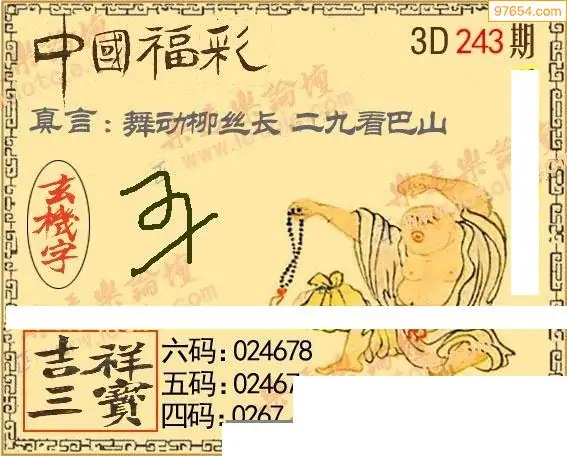 97654.com
中國福彩
3D 243 期
真言：舞动柳丝长 二九看巴山
玄機字
吉祥三寶
六码：024678
五码：02467
四码：0267